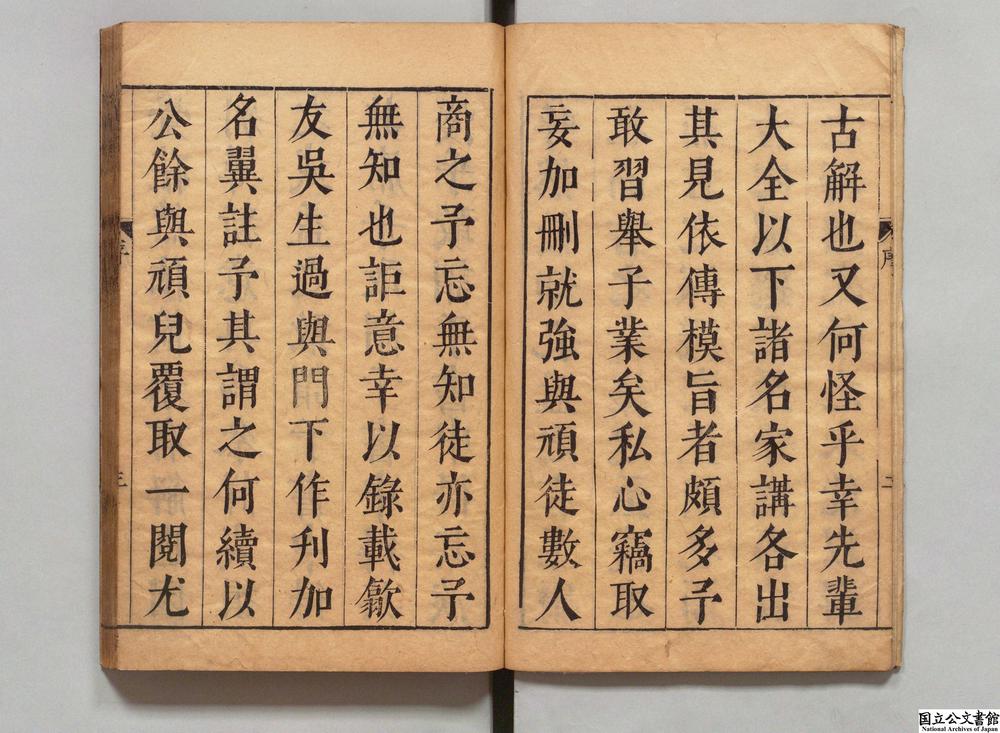 古解也又何怪乎幸先輩
大全以下諸名家講各出
其見依傳模旨者頗多予
敢習舉子業矣私心竊取
妄加刪就強與頑徒數人
序
二
商之予忘無知徒亦忘予
無知也詎意幸以錄載歙
友吳生過與門下作刋加
名翼註予其謂之何續以
公餘與頑兒覆取一閱尤
序
三
国立公文書館
National Archives of Japan